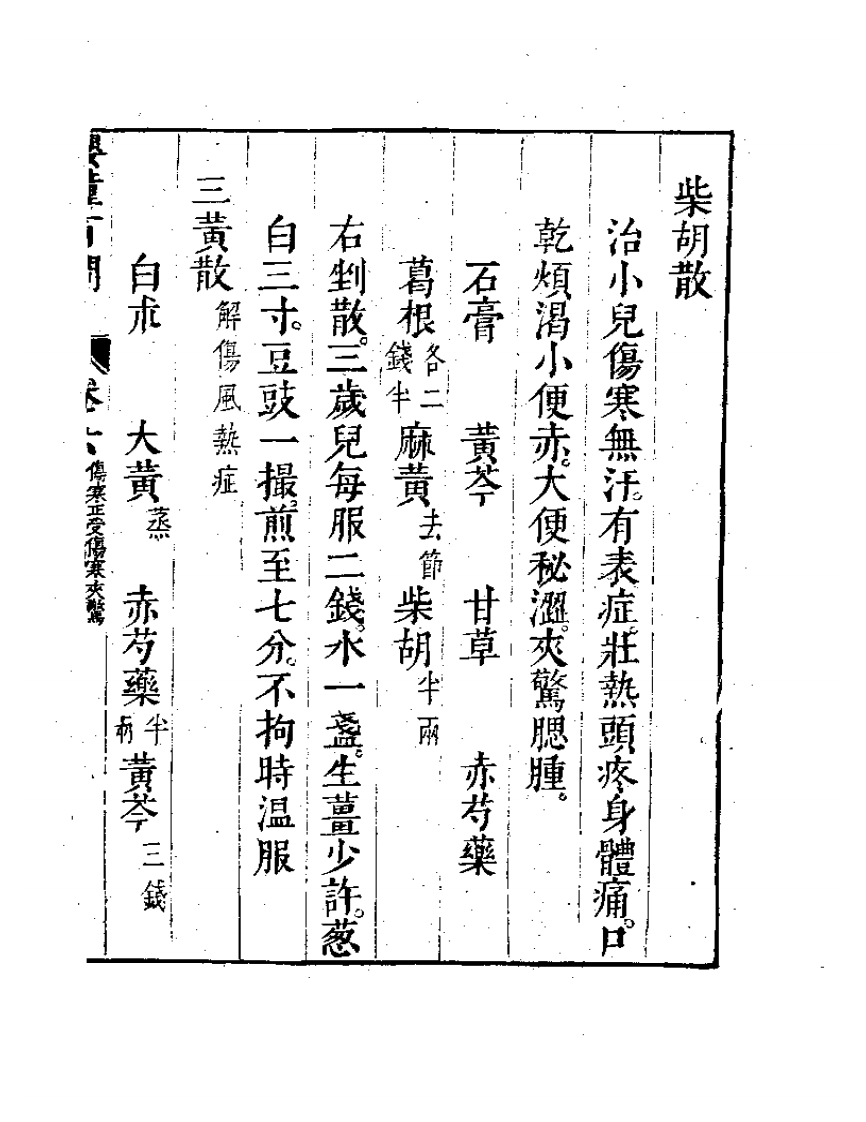 柴胡散
治小兒傷寒無汗。有表症。壯熱頭疼身體痛。口
乾煩渴小便赤。大便秘澀。夾驚腮腫。
石膏 黃芩 甘草 赤芍藥
葛根各二錢半 麻黃去節 柴胡半兩
右剉散。三歲兒每服二錢。水一盞。生薑少許。葱
白三寸。豆豉一撮。煎至七分。不拘時温服
三黃散解傷風熱症
白朮 大黃蒸 赤芍藥半兩 黃芩三錢
嬰童百問 卷六 傷寒正受傷寒夾驚